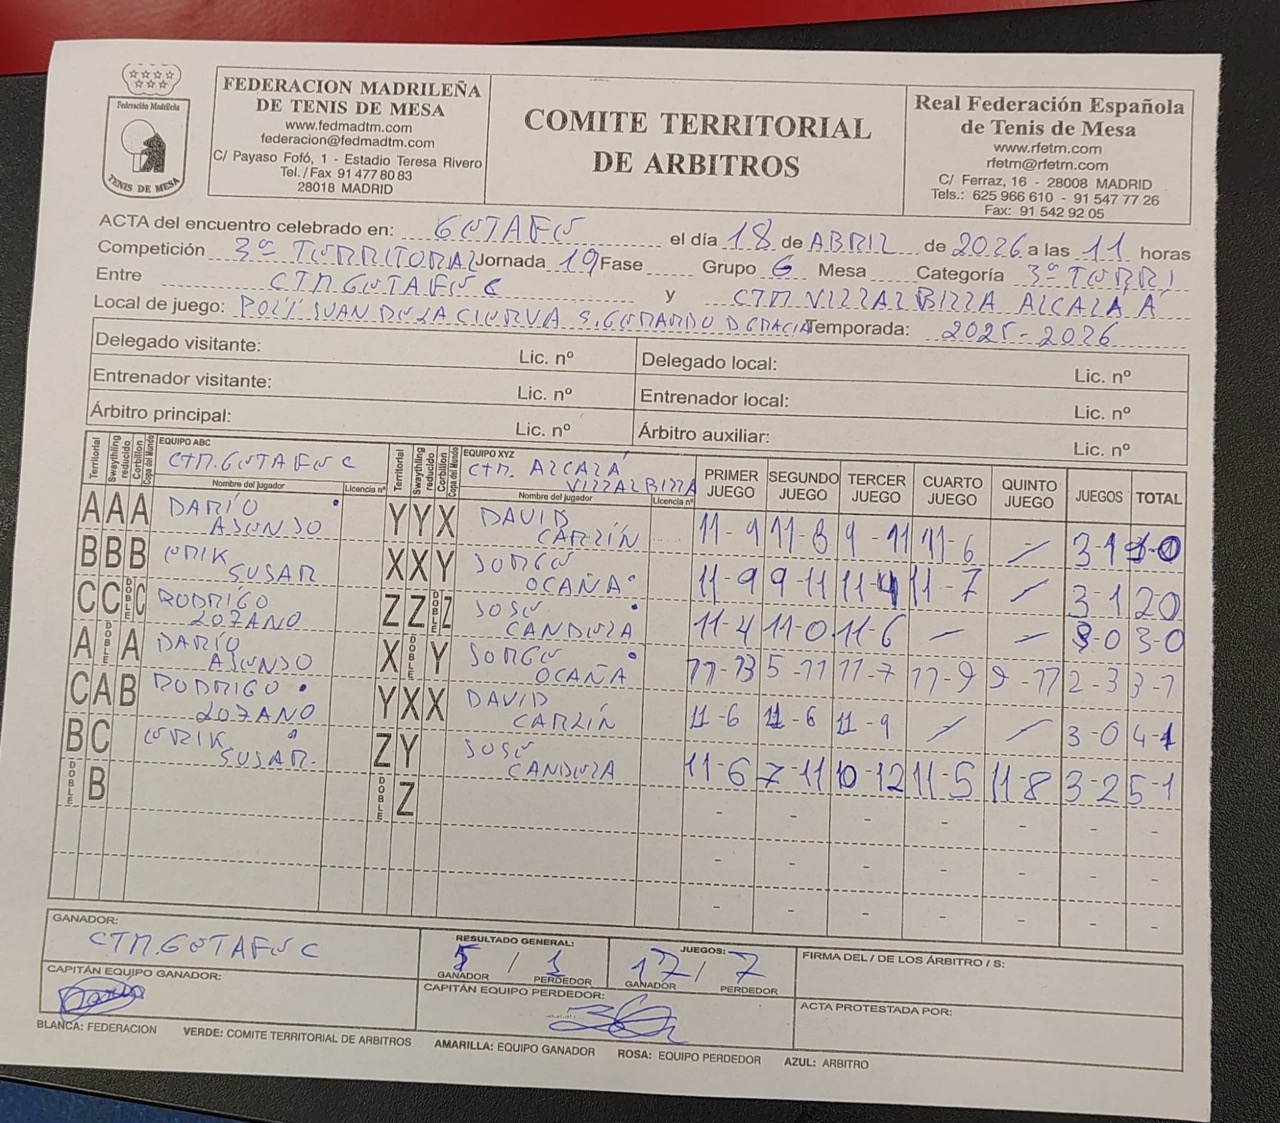 Federación Madrileña
TENIS DE MESA
FEDERACION MADRILEÑA
DE TENIS DE MESA
www.fedmadtm.com
federacion@fedmadtm.com
C/ Payaso Fofó, 1 - Estadio Teresa Rivero
Tel./Fax 91 477 80 83
28018 MADRID
COMITE TERRITORIAL
DE ARBITROS
Real Federación Española
de Tenis de Mesa
www.rfetm.com
rfetm@rfetm.com
C/ Ferraz, 16 - 28008 MADRID
Tels.: 625 966 610 - 91 547 77 26
Fax: 91 542 92 05
ACTA del encuentro celebrado en: GETAFE el día 18 de ABRIL de 2026 a las 11 horas
Competición 3ª TERRITORIAL Jornada 19 Fase Grupo 6 Mesa Categoría 3ª TERRI
Entre CTM.GETAFE C y CTM VILLALBILLA ALCALÁ A
Local de juego: POLI JUAN DE LA CIERVA S. GERARDO D GRACIA Temporada: 2025-2026
Delegado visitante: Lic. nº Delegado local: Lic. nº
Entrenador visitante: Lic. nº Entrenador local: Lic. nº
Árbitro principal: Lic. nº Árbitro auxiliar: Lic. nº
Territorial Swaythling reducido Corbillon Copa del Mundo EQUIPO ABC CTM.GETAFE C Nombre del jugador Licencia nº Territorial Swaythling reducido Corbillon Copa del Mundo EQUIPO XYZ CTM. ALCALÁ VILLALBILLA Nombre del jugador Licencia nº PRIMER JUEGO SEGUNDO JUEGO TERCER JUEGO CUARTO JUEGO QUINTO JUEGO JUEGOS TOTAL
A A A DARÍO ASENSO Y Y X DAVID CARLÍN 11-9 11-8 9-11 11-6 - 3-1 1-0
B B B ERIK SUSAR X X Y JORGE OCAÑA 11-9 9-11 11-4 11-7 - 3-1 2-0
C C DOBLE C RODRIGO LOZANO Z Z DOBLE Z JOSE CANDELA 11-4 11-0 11-6 - - 3-0 3-0
A DOBLE A DARÍO ASENSO X DOBLE Y JORGE OCAÑA 11-13 5-11 11-7 11-9 9-11 2-3 3-1
C A B RODRIGO LOZANO Y X X DAVID CARLÍN 11-6 11-6 11-9 - - 3-0 4-1
B C ERIK SUSAR. Z Y JOSE CANDELA 11-6 7-11 10-12 11-5 11-8 3-2 5-1
DOBLE B DOBLE Z - - - - - - -
- - - - - - -
- - - - - - -
- - - - - - -
GANADOR: CTM.GETAFE C RESULTADO GENERAL: 5 / 1 GANADOR PERDEDOR JUEGOS: 17 / 7 GANADOR PERDEDOR FIRMA DEL / DE LOS ÁRBITRO / S:
CAPITÁN EQUIPO GANADOR: CAPITÁN EQUIPO PERDEDOR: ACTA PROTESTADA POR:
BLANCA: FEDERACION VERDE: COMITE TERRITORIAL DE ARBITROS AMARILLA: EQUIPO GANADOR ROSA: EQUIPO PERDEDOR AZUL: ARBITRO